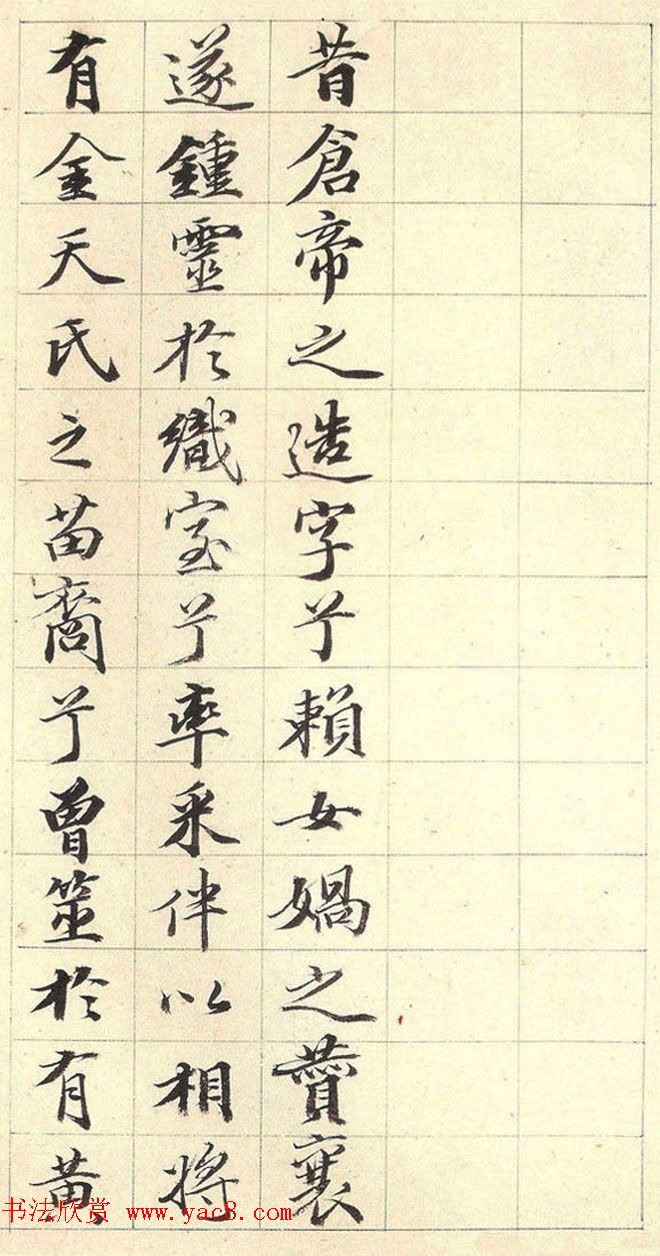 昔倉帝之造字兮賴女媧之贊襄
遂鍾靈於織室兮率采伴以相將
有金天氏之苗裔兮曾筮於有黃
书法欣赏 www.yac8.com